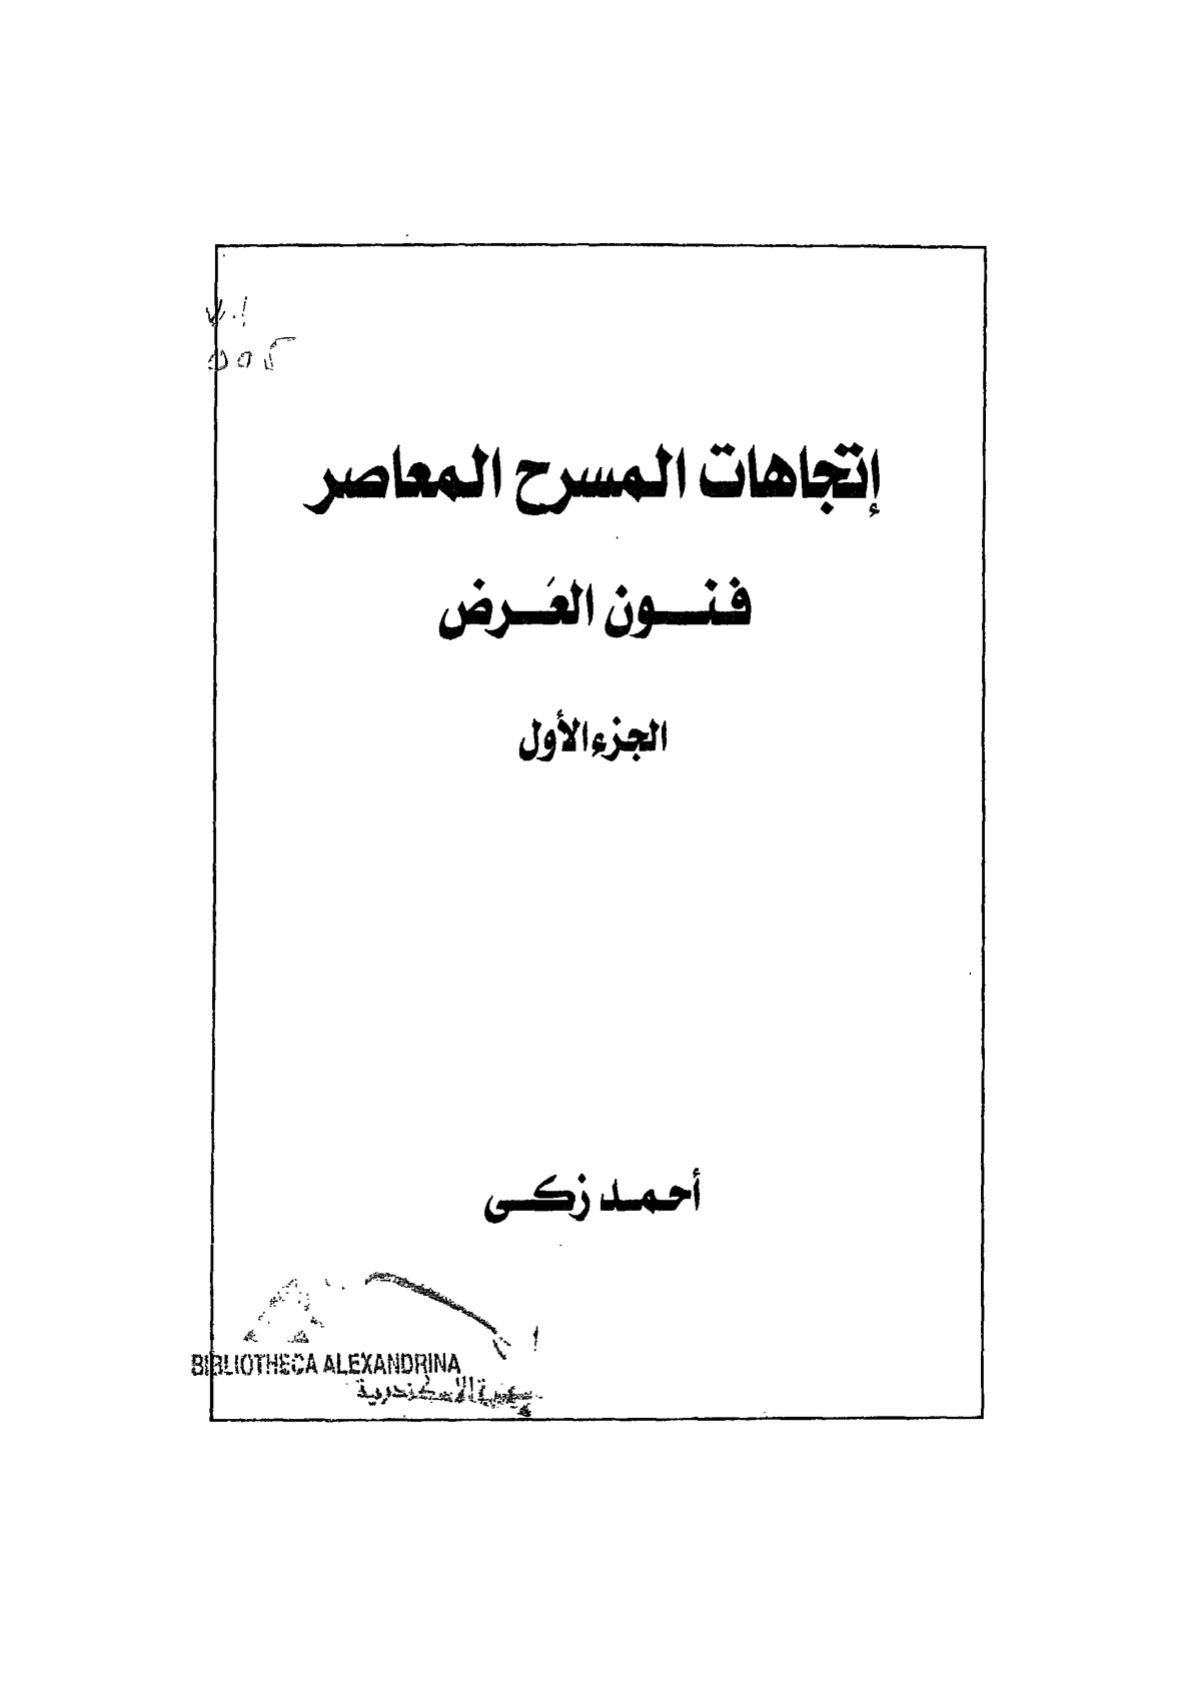 v.1
إتجاهات المسرح المعاصر
فنـــون العَـــرض
الجزء الأول
أحمـد زكـى
BIBLIOTHECA ALEXANDRINA
الاسكندرية